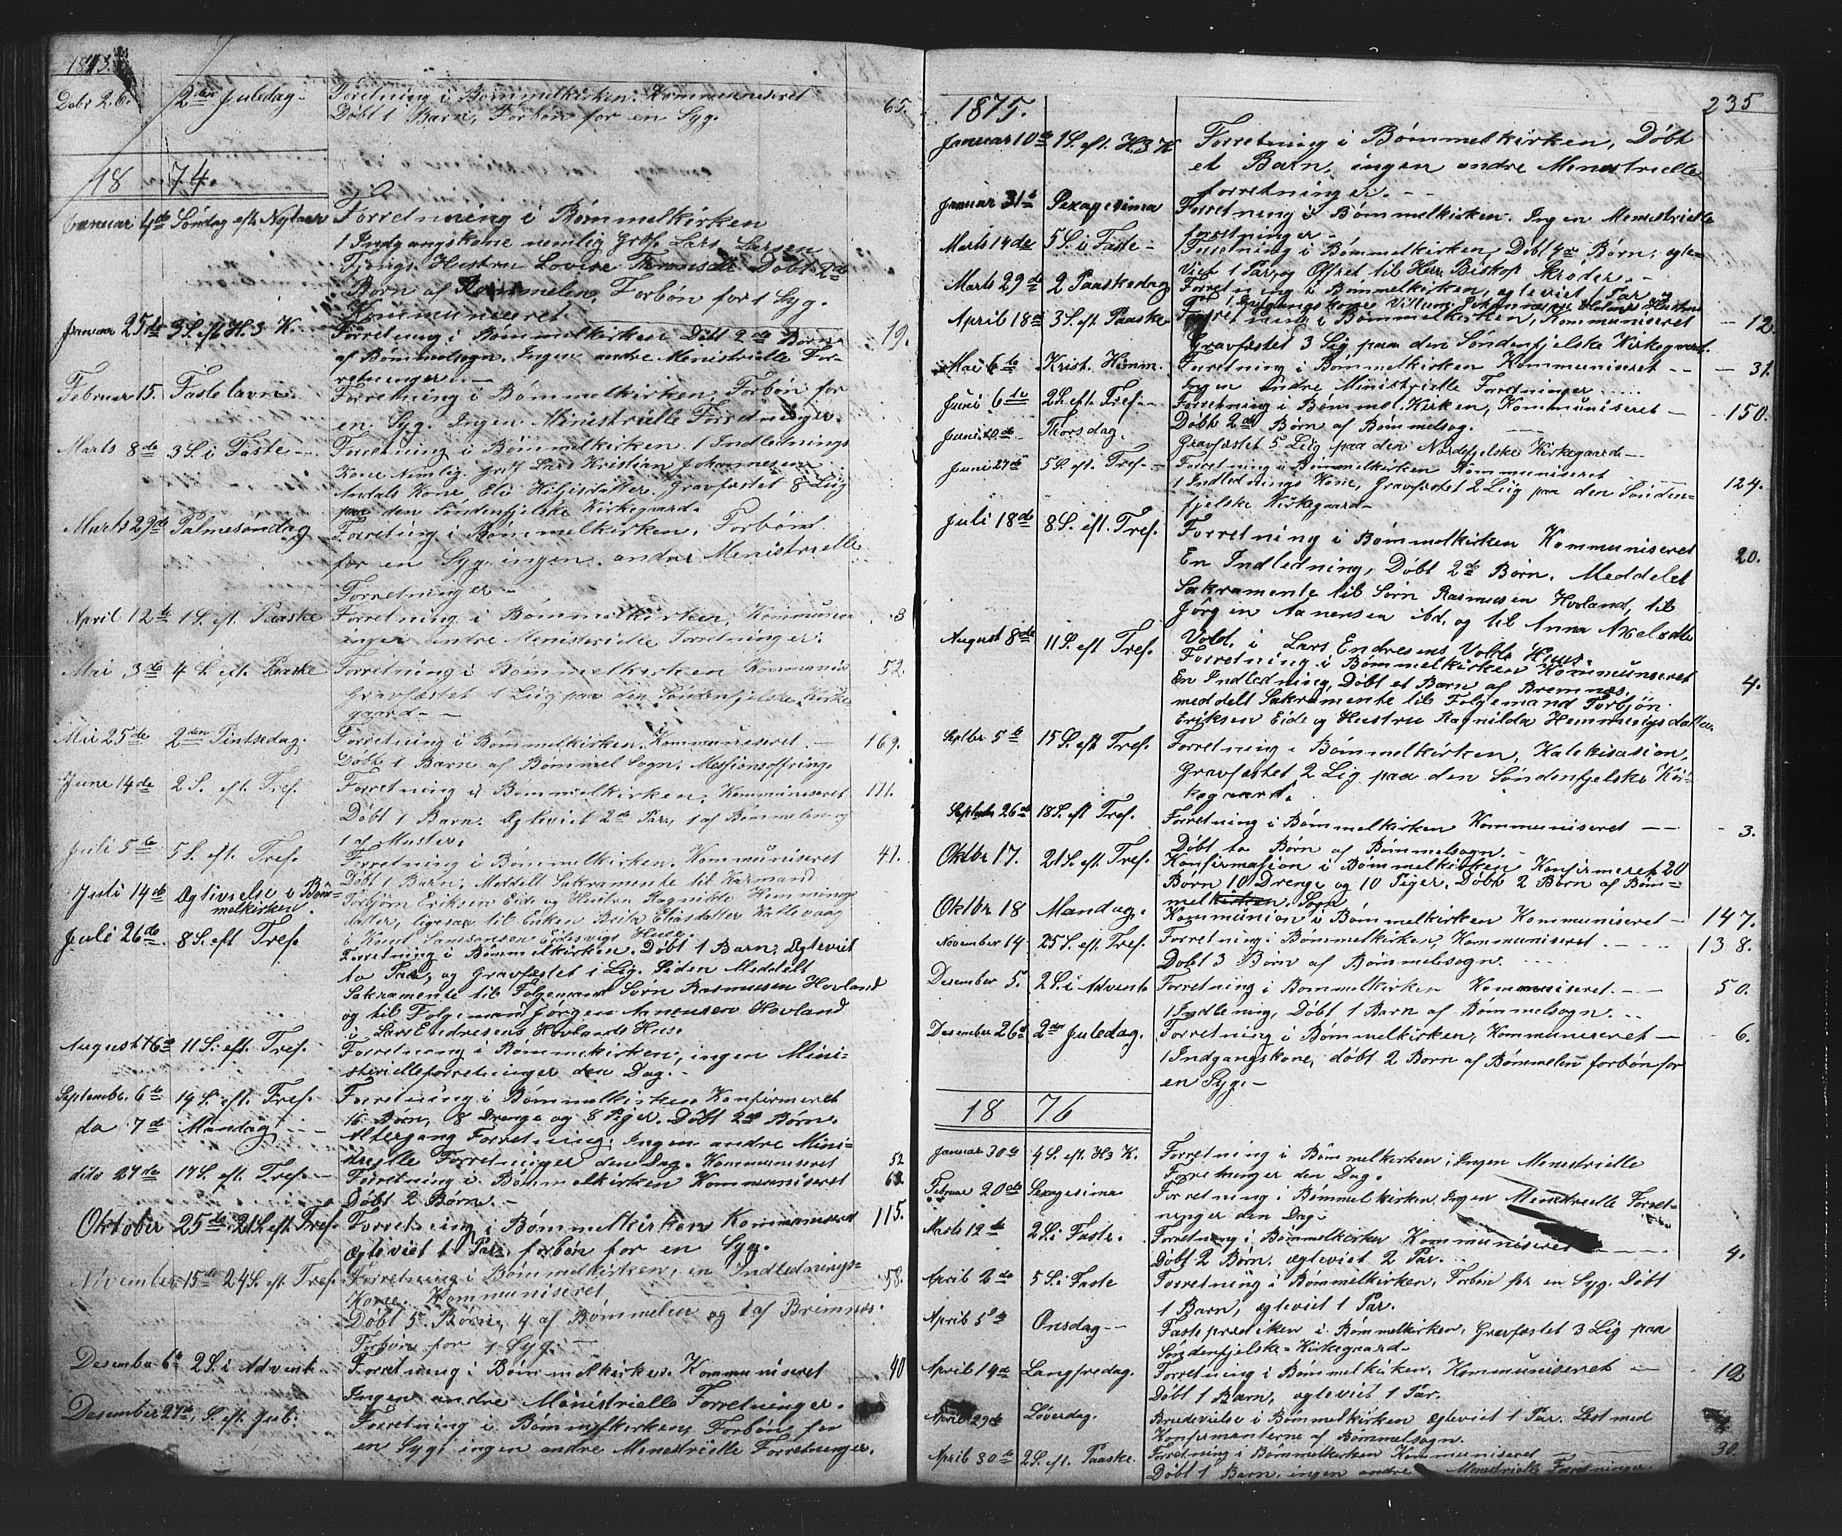 1873.
Debr 26. 2den Juledag. Forretning i Bømmelkirken. Kommuniseret 65.
Døbt 1 Barn, Forbøn for en Syg.
1874.
Januar 4de Søndag eft Nytaar Forretning i Bømmelkirken
1 Indgangskone nemlig Lars Larsen
Hustru Lovise Døbt 2de
Børn af Bømmelen, Forbøn for 1 Syg.
Kommuniseret
Januar 25de 3 S. eft H. 3 K. Forretning i Bømmelkirken Døbt 2de Børn 19.
af Bømmelsogn. Ingen andre Menistrielle For-
retninger. —
Februar 15. Fastelavn Forretning i Bømmelkirken, Forbøn for
en Syg. Ingen Ministrielle Forredninger.
Marts 8de 3 S. i Faste — Forretning i Bømmelkirken 1 Indlednings
Kone Nemlig Lars Kristian Johannesen
Kone, Gravfæstet 8 Liig
paa den Søndenfjelske Kirkegaard.
Marts 29de Palmesøndag Forretning i Bømmelkirken. Forbøn
for en Syg ingen andre Menistrielle
Forretninger —
April 12te 1 S. eft. Paaske Forretning i Bømmelkirken, 3
ingen andre Menisterielle Forretninger.
Mai 3de 4 S. eft. Paaske Forretning i Bømmelkirken 52.
Gravfæstet 1 Liig paa den Søndenfjelske Kirke
gaard —
Mai 25de 2den Pintsedag. Forretning i Bømmelkirken. Kommuniseret — 169.
Døbt 1 Barn af Bømmel Sogn. Missionsoffring.
Juni 14de 2 S. eft. Tref. Forretning i Bømmelkirken, Kommuniseret 111.
Døbt 1 Barn. Egteviet 2de Par, 1 af Bømmelsogn
1 af Moster.
Juli 5te 5 S. eft. Tref. Forretning i Bømmelkirken. Kommuniseret 41.
Døbt 1 Barn, Meddelt Sakramente til
Juli 14de Egtevielse i Bøm-
melkirken. Torbjørn Eriksen Eide og Hustru Ragnilde Hemmings
datter, ligesaa til Enken Brita
i Knut Samsonsen Eidesvigs Huse.
Juli 26de 8 S. eft Tref. Forretning i Bømmelkirken. Døbt 1 Barn, Egteviet
to Par, og Gravfæstet 1 Lig. Siden Meddelt
Sakramente til Følgemand Sørn Rasmusen Hovland
og til Følgemand Jørgen Aanensen Hovland
i Lars Endresens Hovlands Hus.
August 16de 11 S. eft. Tref. Forretning i Bømmelkirken, ingen Mini-
sterielleforretninger den Dag. —
September 6te 14 S. eft. Tref. Forretning i Bømmelkirken Konfirmeret
16 Børn, 8 Drenge og 8 Piger. Døbt 2de Børn.
do 7de Mandag — Altergang Forretning. Ingen andre Mini-
strielle Forretninger den Dag. Kommuniseret 52
dito 27de 17 S. eft. Tref. — Forretning i Bømmelkirken Kommuniseret 63.
Døbt 2 Børn. —
Oktober 25de 21 S. eft Tref. Forretning i Bømmelkirken Kommuniseret 115.
Egteviet 1 Par, forbøn for en Syg.
November 15de 24 S. eft. Tref. Forretning i Bømmelkirken, en Indlednings- 58.
Kone. Kommuniseret
Døbt 5 Børn, 4 af Bømmelen og 1 af Bremnes.
Forbøn for 1 Syg. —
Desember 6te 2 S. i Advent. Forretning i Bømmelkirken. Kommuniseret 40
Ingen andre Ministrielle Forretninger.
Desember 27de S. eft Jul. Forretning i Bømmelkirken, Forbøn for
en Syg ingen andre Menistrielle Forretninger.
235
1875.
Januar 10de 1 S. eft. H. 3 K Forretning i Bømmelkirken, Døbt
et Barn, ingen andre Menistrielle
forretninger. —
Januar 31te Sexagesima Forretning i Bømmelkirken. Ingen Menistrielle
forretninger —
Marts 14de 5 S. i Faste — Forretning i Bømmelkirken, Døbt 4de Børn, egte-
Viet 1 Par, og Offret til Herr Biskop Skrøder. —
Marts 29de 2 Paaskedag Forretning i Bømmelkirken, egteviet 1 Par og
1 Indgangskone
April 18de 3 S. eft. Paaske Forretning i Bømmelkirken, Kommuniseret — 12.
Gravfæstet 3 Liig paa den Søndenfjelske Kirkegaard.
Mai 6te Krist. Himm. Forretning i Bømmelkirken Kommuniseret — — 31.
Ingen Andre Ministrielle Foredninger
Juni 6te 2 S. ef Tref. — Forretning i Bømmel Kirken, Kommuniseret — 150.
Døbt 2de Børn af Bømmelsog.
Juni 10de Torsdag. Gravfæstet 5 Liig paa den Nordefjelske Kirkegaard —
Juni 27de 5 S. eft. Tref. — Forretning i Bømmelkirken Kommuniseret 124.
1 Indlednings Kone, Gravfæstet 2 Liig paa den Sønden-
fjelske Kirkegaard —
Juli 18de 8 S. eft. Tref. Forretning i Bømmelkirken Kommuniseret 20.
En Indledning, Døbt 2de Børn. Meddelet
Sakramente til Sørn Rasmusen Hovland, til
Jørgen Aanensen ibd. og til Anna Axelsdtr
Vold, i Lars Endresens Volle Huus.
August 8de 11 S. eft Tref. Forretning i Bømmelkirken Kommuniseret 4.
En Indledning, Døbt et Barn af Bremnes.
meddelt Sakramente til Følgemand Torbjøn
Eriksen Eide og Hustru Ragnilda Hemmingsdatter.
Septbr 5te 15 S. eft Tref. Forretning i Bømmelkirken, Katekisasion,
Gravfæstet 2 Lig paa den Søndenfjelske Kir-
kegaard.
Septembr 26de 18 S. eft Tref. Forretning i Bømmelkirken Kommuniseret — — 3.
Døbt to Børn af Bømmelsogn.
Oktbr 17. 21 S. eft Tref. Konfirmasion i Bømmelkirken Konfirmeret 20
Børn 10 Drenge og 10 Piger. Døbt 2 Børn af Bøm-
melkirken, Sogn
Oktbr 18 Mandag. Kommunion i Bømmelkirken Kommuniseret — 147.
November 14. 25 S. eft. Tref. Forretning i Bømmelkirken, Kommuniseret. — 138.
Døbt 3 Børn af Bømmelsogn.
Desember 5. 2 S. i Advent Forretning i Bømmelkirken Kommuniseret. — — 50.
1 Indledning, Døbt 1 Barn af Bømmelsogn.
Desember 26de 2den Juledag. Forretning i Bømmelkirken, Kommuniseret — 6.
1 Indgangskone, døbt 2 Børn af Bømmelen forbøn for
en Syg. —
1876
Januar 30te 4 S. eft. H 3 K. Forretning i Bømmelkirken, Ingen Menistrielle
Forretninger den Dag.
Februar 20de Sexagesima Forretning i Bømmelkirken Ingen Menistrielle Forret-
ninger den Dag.
Marts 12te 2 S. i Faste. Forretning i Bømmelkirken Kommuniseret 4.
Døbt 2 Børn, egteviet 2 Par.
April 2de 5 S. i Faste Forretning i Bømmelkirken, Forbøn for en Syg. Døbt
1 Barn, egteviet 1 Par.
April 5te Onsdag — Fasteprædiken i Bømmelkirken, Gravfæstet 3 Lig paa
Søndenfjelske Kirkegaard —
April 14de Langfredag. Forretning i Bømmelkirken, Kommuniseret — 12
Døbt 1 Barn, egteviet 1 Par.
April 29de Løverdag. Brudevielse i Bømmelkirken egteviet 1 Par. Lest med
Konfirmanterne af Bømmelsogn.
April 30te 2 S. eft. Paaske. Forretning i Bømmelkirken Kommuniseret — 30.
Døbt 1 Barn, ingen andre Menistrielle Forretninger.